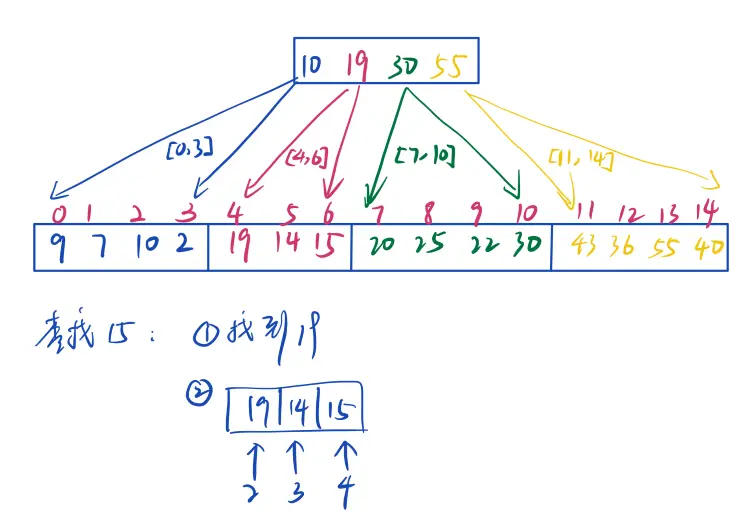 10 19 30 55
[0,3] [4,6] [7,10] [11,14]
0 1 2 3 4 5 6 7 8 9 10 11 12 13 14
9 7 10 2 19 14 15 20 25 22 30 43 36 55 40
查找15： ①找到19
② 19 14 15
2 3 4